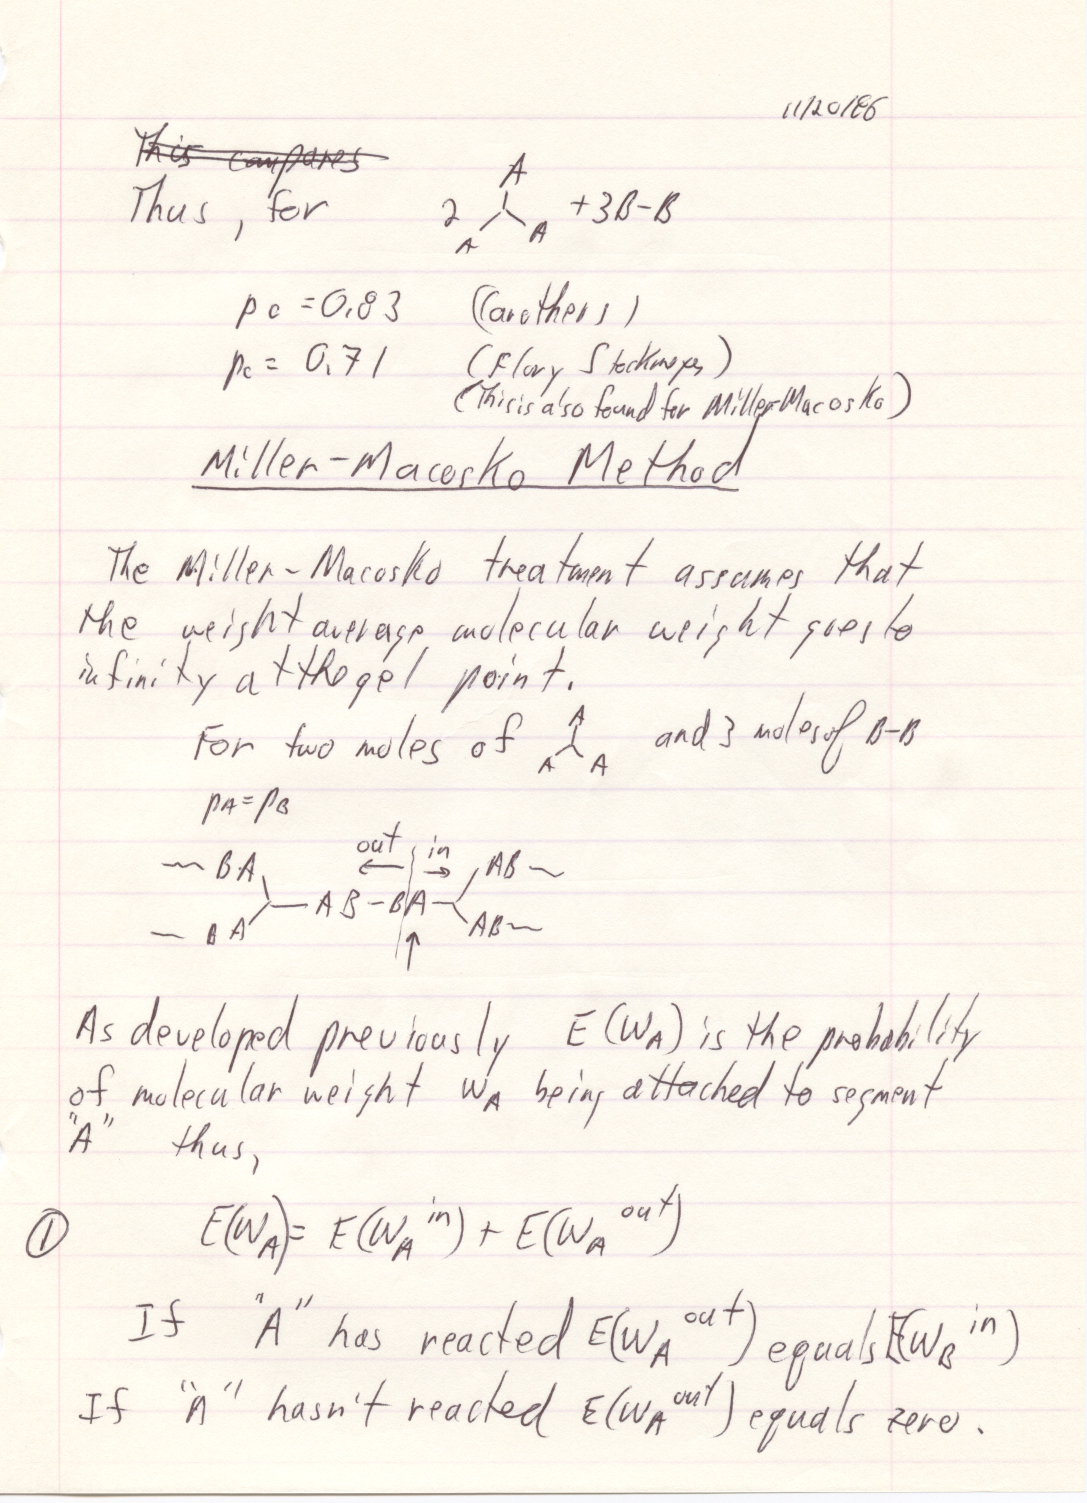 11/20/86
This compares
Thus, for 2 A A A + 3B-B
pc = 0.83 (Carothers)
pc = 0.71 (Flory Stockmayer)
(This is also found for Miller-Macosko)
Miller-Macosko Method
The Miller-Macosko treatment assumes that
the weight average molecular weight goes to
infinity at the gel point.
For two moles of A A A and 3 moles of B-B
pA = pB
out in
~ BA AB ~
AB-BA
~ BA AB ~
As developed previously E(WA) is the probability
of molecular weight WA being attached to segment
"A" thus,
① E(WA) = E(WA^in) + E(WA^out)
If "A" has reacted E(WA^out) equals E(WB^in)
If "A" hasn't reacted E(WA^out) equals zero.